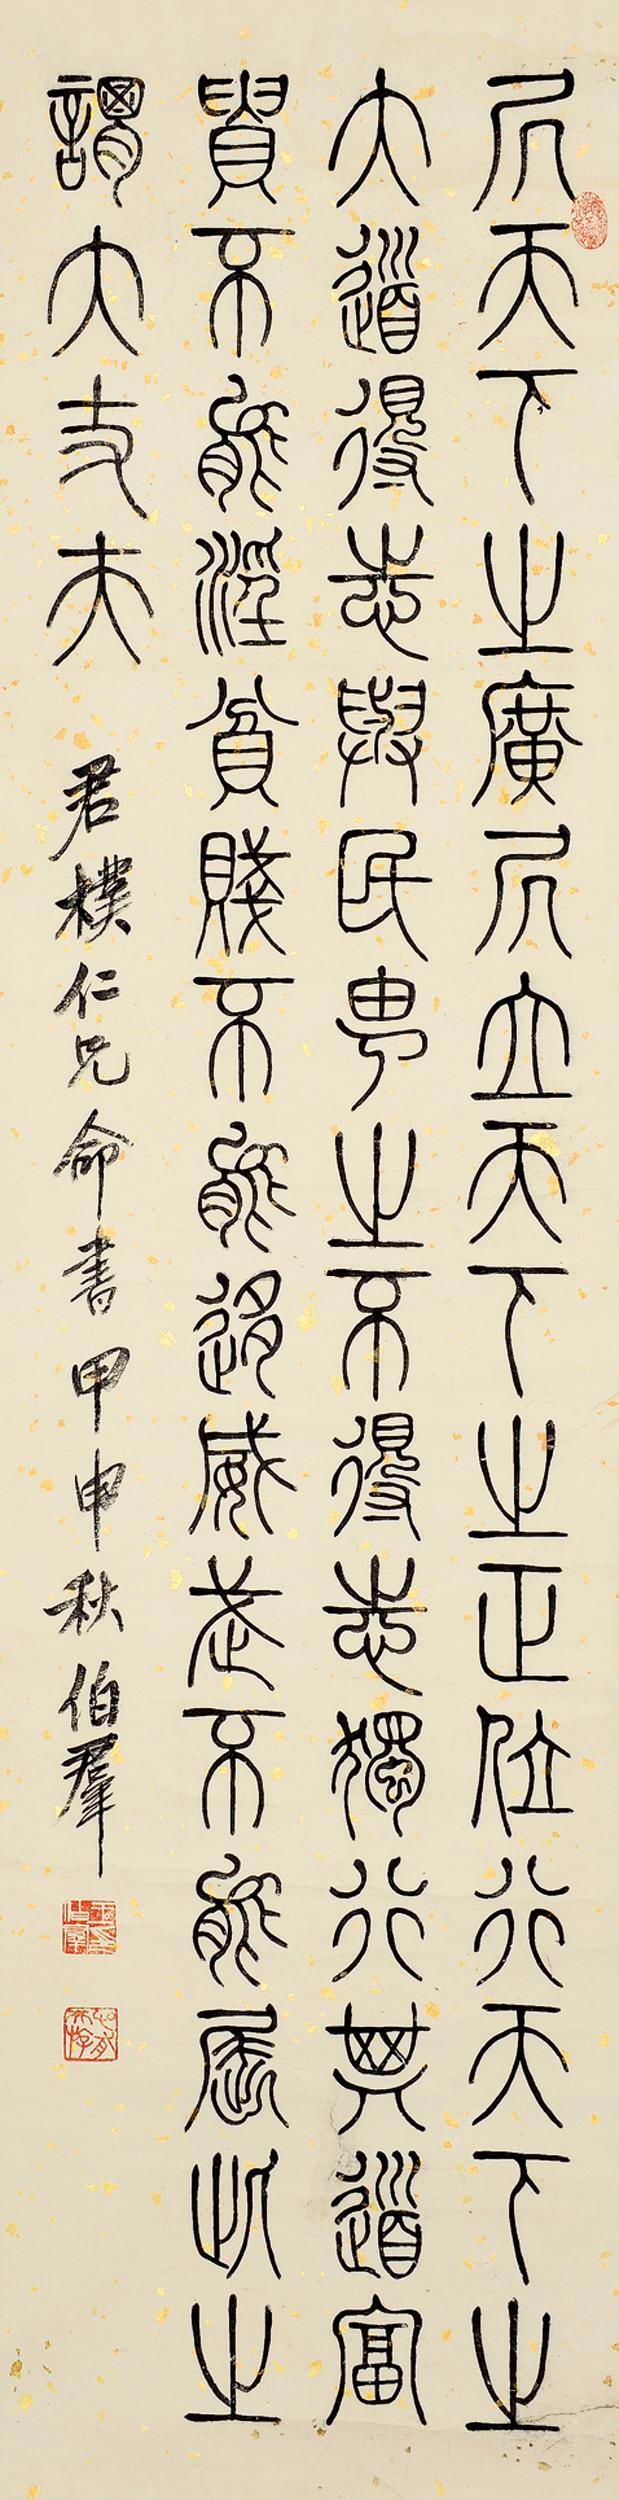 居天下之廣居立天下之正位行天下之
大道得志與民由之不得志獨行其道富
貴不能淫貧賤不能移威武不能屈此之
謂大丈夫
君樸仁兄命書甲申秋伯羣